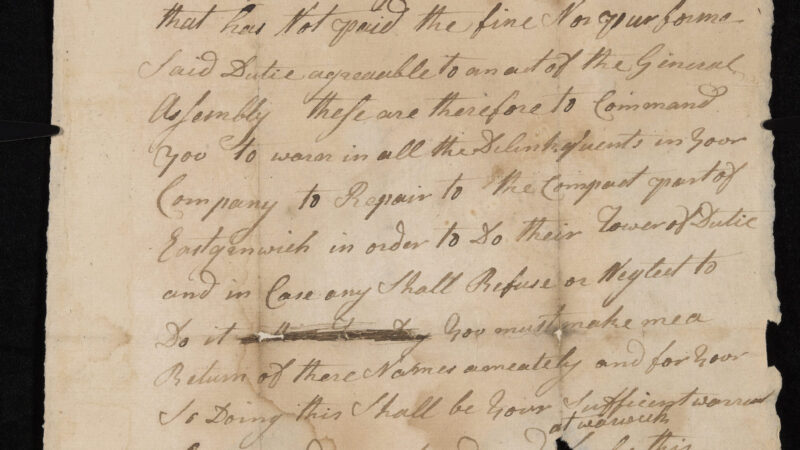 that has Not paid the fine Nor purforme
Said Dutie agreaable to an act of the General
Assembly these are therefore to Command
You to warn in all the Delinkquents in Your
Company to Repair to the Compact part of
Eastgenwich in order to Do their Tower of Dutie
and in Case any Shall Refuse or Neglect to
Do it You must make me a
Return of there Names ameately and for Your
So Doing this Shall be Your Sufficent warran
at warwick
this